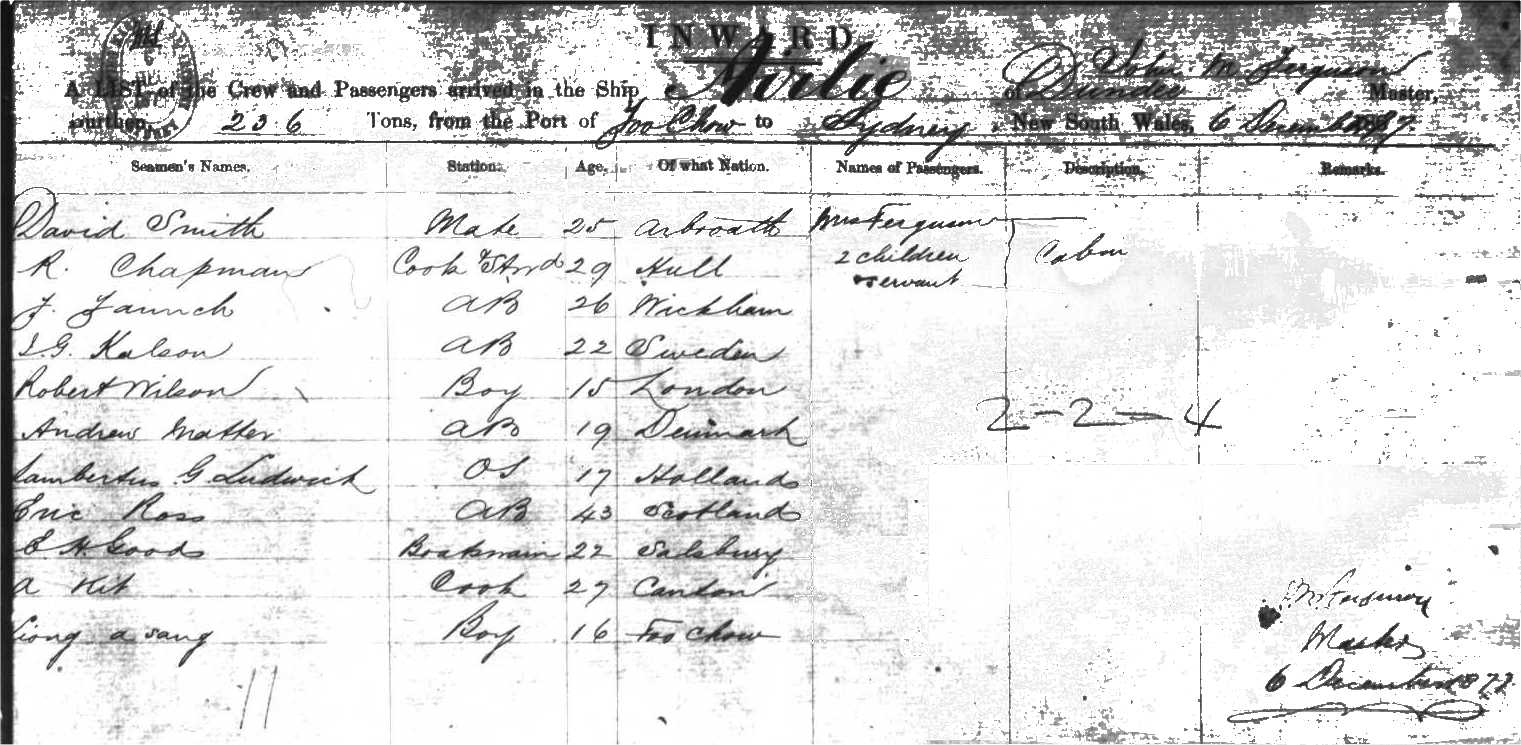 INWARD
A LIST of the Crew and Passengers arrived in the Ship Airlie of Dundee John M Ferguson Master,
Burthen 236 Tons, from the Port of Foo Chow to Sydney, New South Wales, 6 December 1877.
Seamen's Names. Station. Age. Of what Nation. Names of Passengers. Description. Remarks.
David Smith Mate 25 Arbroath Mrs Ferguson
R. Chapman Cook & Stwd 29 Hull 2 children Cabin
servant
F. Faunch AB 26 Wickham
I.G. Kalson AB 22 Sweden
Robert Wilson Boy 15 London
Andrew Matter AB 19 Denmark 2-2-4
Lambertus G. Ludwick OS 17 Holland
Eric Ross AB 43 Scotland
E H. Goods Boatswain 22 Salsbury
A Kit Cook 27 Canton
a sang Boy 16 Foo Chow
Ferguson
Master
6 December 1877
11